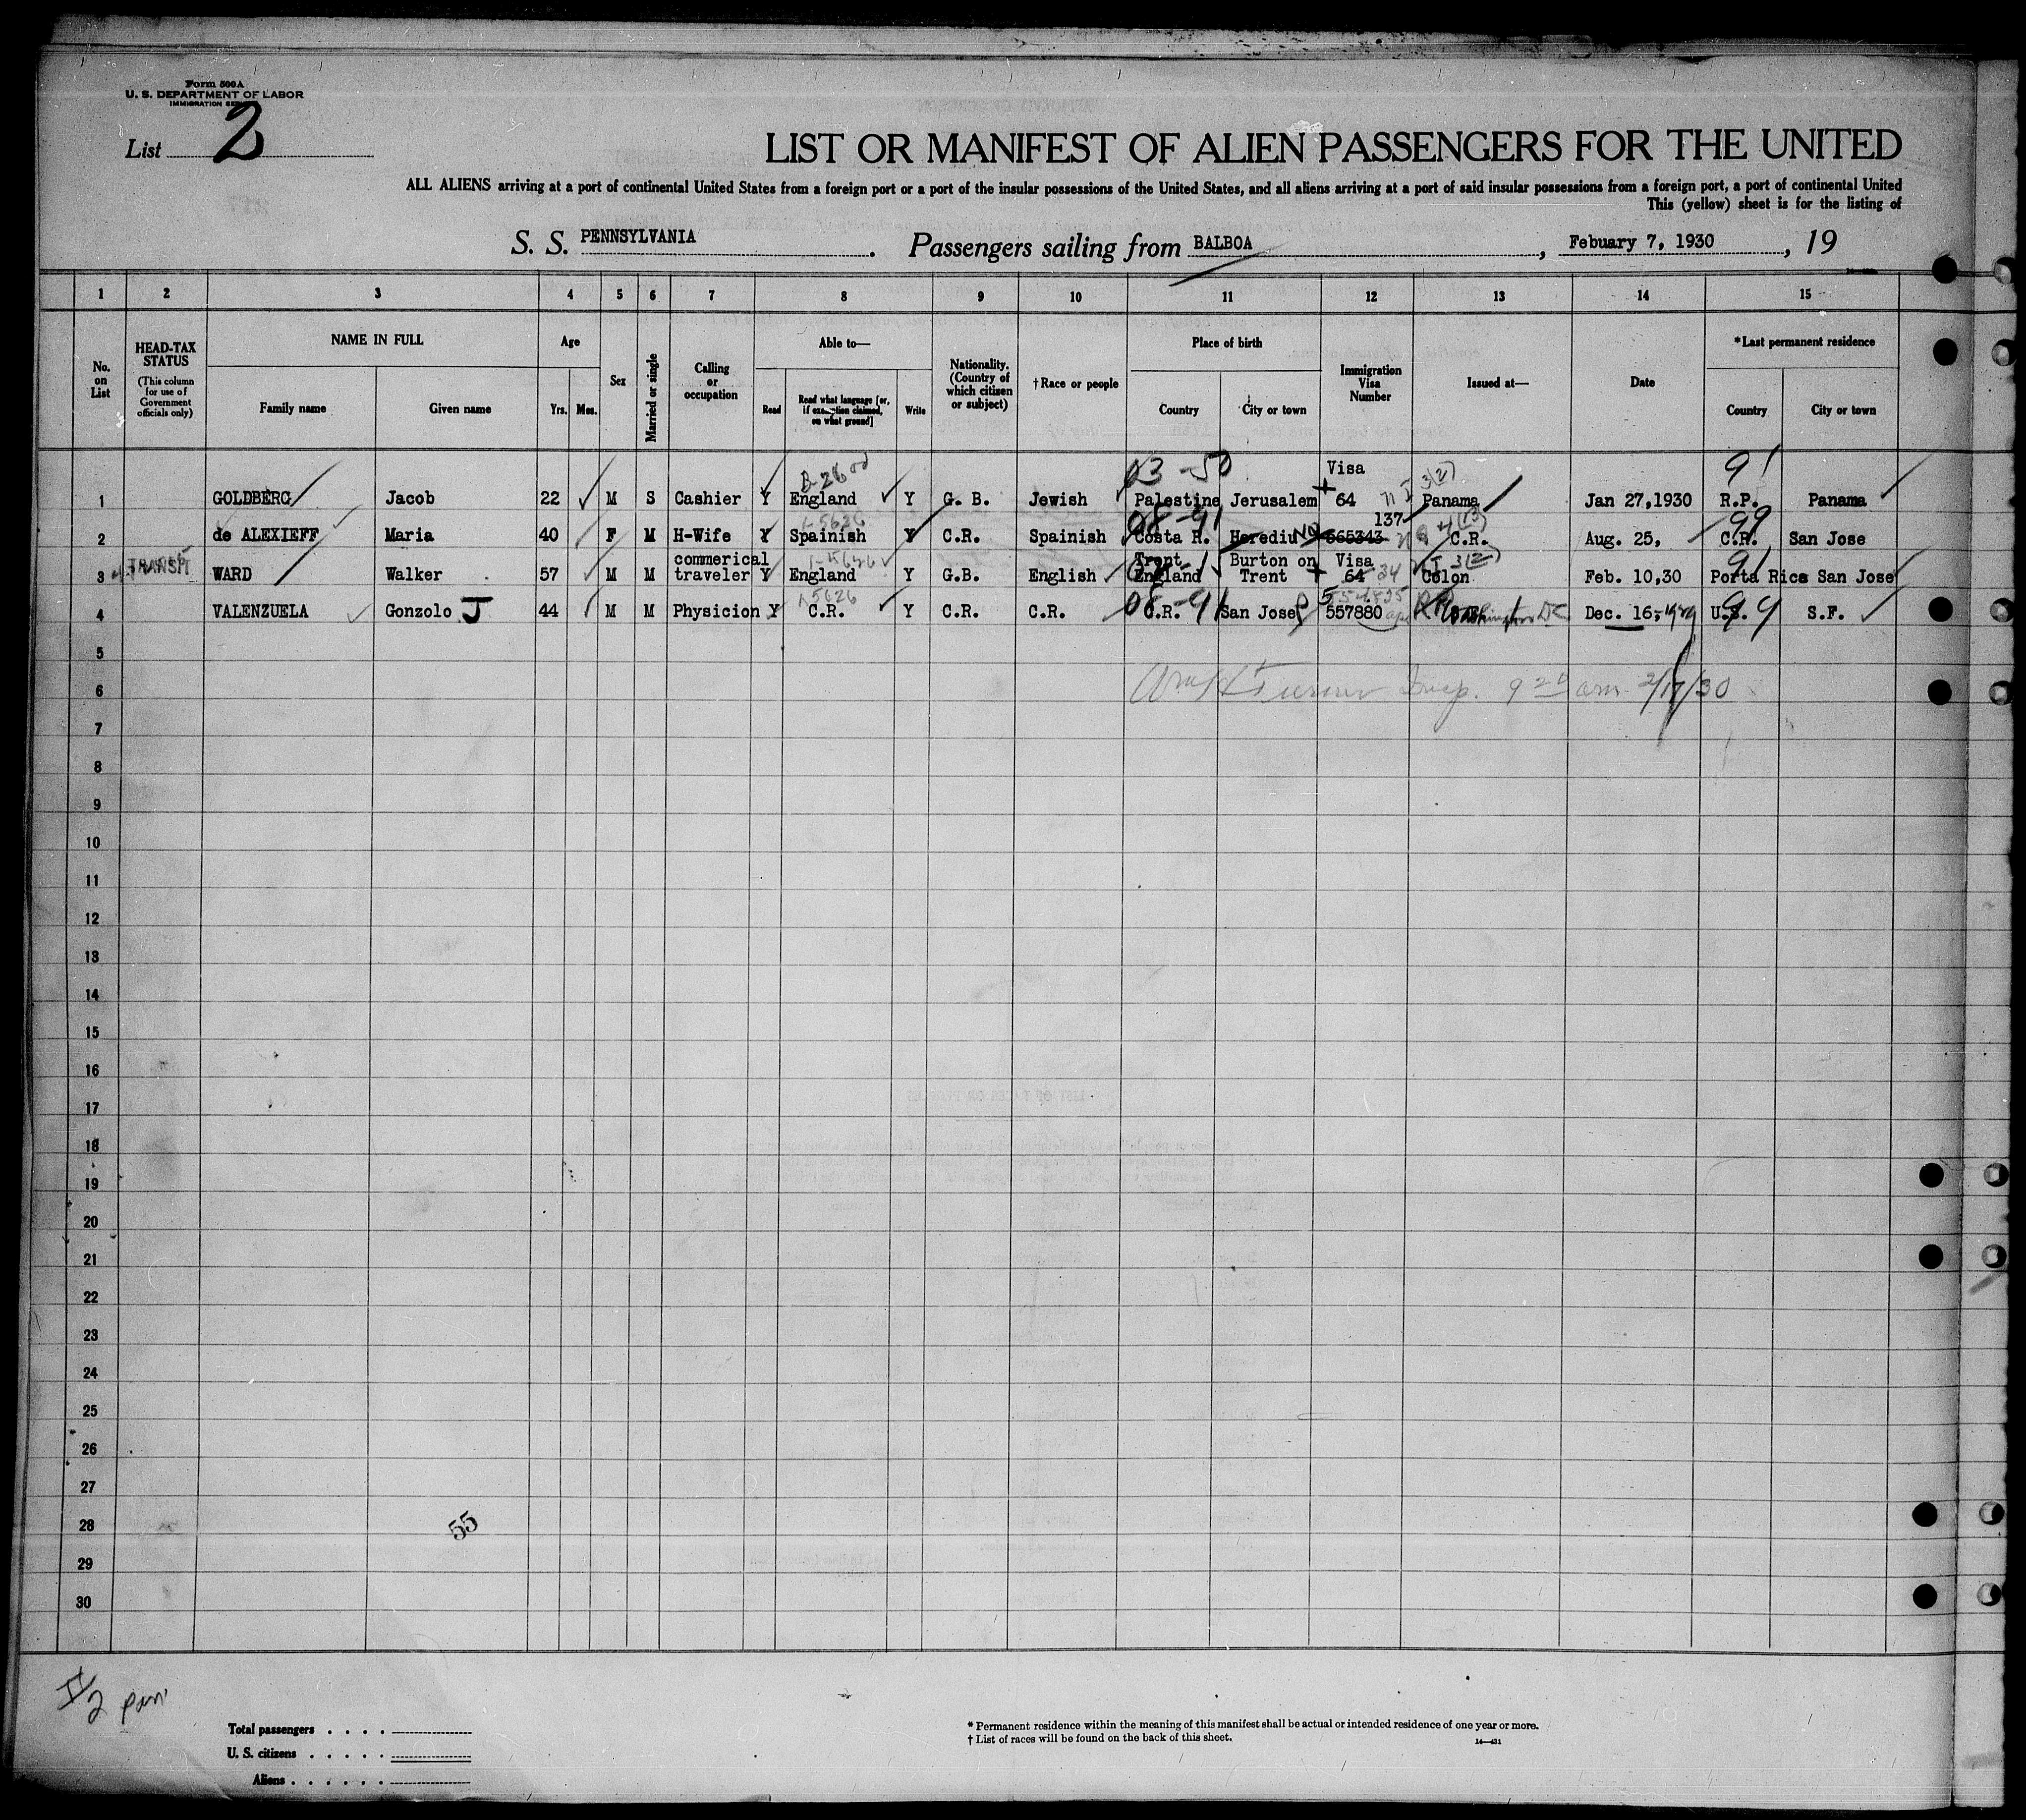 Form 500A
U. S. DEPARTMENT OF LABOR
IMMIGRATION SERVICE
List 2
LIST OR MANIFEST OF ALIEN PASSENGERS FOR THE UNITED
ALL ALIENS arriving at a port of continental United States from a foreign port or a port of the insular possessions of the United States, and all aliens arriving at a port of said insular possessions from a foreign port, a port of continental United
This (yellow) sheet is for the listing of
S. S. PENNSYLVANIA . Passengers sailing from BALBOA , Febuary 7, 1930 , 19
1 2 3 4 5 6 7 8 9 10 11 12 13 14 15
No. on List
HEAD-TAX STATUS
(This column for use of Government officials only)
NAME IN FULL
Family name Given name
Age
Yrs. Mos.
Sex
Married or single
Calling or occupation
Able to—
Read
Read what language [or, if exemption claimed, on what ground]
Write
Nationality. (Country of which citizen or subject)
†Race or people
Place of birth
Country City or town
Immigration Visa Number
Issued at—
Date
*Last permanent residence
Country City or town
03 -50 Visa 91
1 GOLDBERG Jacob 22 M S Cashier Y England Y G. B. Jewish Palestine Jerusalem 64 Panama Jan 27,1930 R.P. Panama
08 -91 137 99
2 de ALEXIEFF Maria 40 F M H-Wife Y Spainish Y C.R. Spainish Costa R. Herediu NQ 565343 C.R. Aug. 25, C.R. San Jose
TRANSIT commerical Trent Burton on Visa 91
3 WARD Walker 57 M M traveler Y England Y G.B. English England Trent 64 34 Colon Feb. 10,30 Porta Rica San Jose
5626
4 VALENZUELA Gonzolo J 44 M M Physicion Y C.R. Y C.R. C.R. 08 -91 C.R. San Jose 557880 Washington DC Dec. 16, 1929 U.S. 99 S.F.
5
6 Insp. 9 20 am 2/17/30
7
8
9
10
11
12
13
14
15
16
17
18
19
20
21
22
23
24
25
26
27
28 55
29
30
Total passengers . . . .
U. S. citizens . . . . .
Aliens . . . . . .
* Permanent residence within the meaning of this manifest shall be actual or intended residence of one year or more.
† List of races will be found on the back of this sheet.
14—431